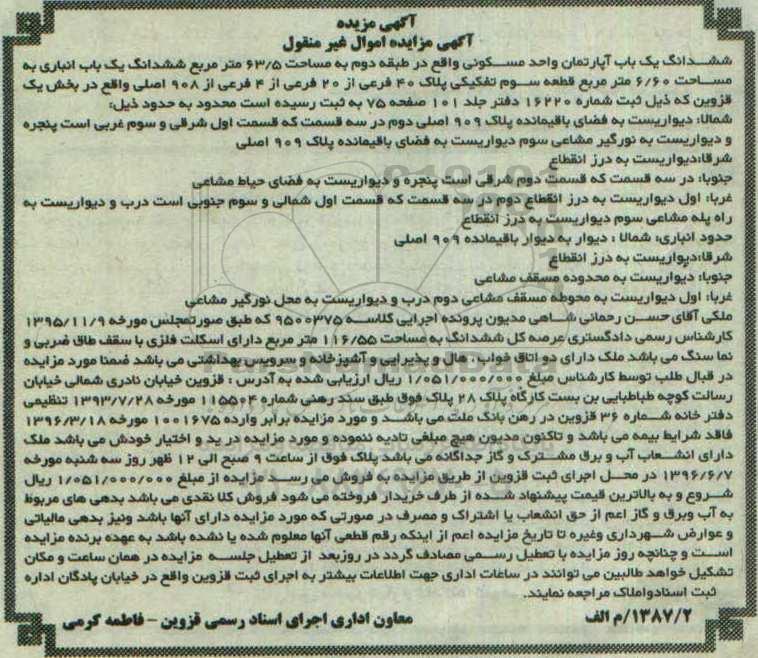 آگهی مزیده
آگهی مزایده اموال غیر منقول
ششـدانگ یک باب آپارتمان واحد مسـکونی واقع در طبقه دوم به مساحت ۶۳/۵ متر مربع ششدانگ یک باب انباری به
مساحت ۶/۶۰ متر مربع قطعه سـوم تفکیکی پلاک ۴۰ فرعی از ۲۰ فرعی از ۴ فرعی از ۹۰۸ اصلی واقع در بخش یک
قزوین که ذیل ثبت شماره ۱۶۲۲۰ دفتر جلد ۱۰۱ صفحه ۷۵ به ثبت رسیده است محدود به حدود ذیل:
شمالا: دیواریست به فضای باقیمانده پلاک ۹۰۹ اصلی دوم در سه قسمت که قسمت اول شرقی و سوم غربی است پنجره
و دیواریست به نورگیر مشاعی سوم دیواریست به فضای باقیمانده پلاک ۹۰۹ اصلی
شرقا:دیواریست به درز انقطاع
جنوبا: در سه قسمت که قسمت دوم شرقی است پنجره و دیواریست به فضای حیاط مشاعی
غربا: اول دیواریست به درز انقطاع دوم در سه قسمت که قسمت اول شمالی و سوم جنوبی است درب و دیواریست به
راه پله مشاعی سوم دیواریست به درز انقطاع
حدود انباری: شمالا : دیوار به دیوار باقیمانده ۹۰۹ اصلی
شرقا:دیواریست به درز انقطاع
جنوبا: دیواریست به محدوده مسقف مشاعی
غربا: اول دیواریست به محوطه مسقف مشاعی دوم درب و دیواریست به محل نورگیر مشاعی
ملکی آقای حسـن رحمانی شـاهی مدیون پرونده اجرایی کلاسـه ۹۵۰۰۳۷۵ که طبق صورتمجلس مورخه ۱۳۹۵/۱۱/۹
کارشناس رسمی دادگستری عرصه کل ششدانگ به مساحت ۱۱۶/۵۵ متر مربع دارای اسکلت فلزی با سقف طاق ضربی و
نما سنگ می باشد ملک دارای دو اتاق خواب ، هال و پذیرایی و آشپزخانه و سرویس بهداشتی می باشد ضمنا مورد مزایده
در قبال طلب توسط کارشناس مبلغ ۱/۰۵۱/۰۰۰/۰۰۰ ریال ارزیابی شده به آدرس : قزوین خیابان نادری شمالی خیابان
رسالت کوچه طباطبایی بن بست کارگاه پلاک ۲۸ پلاک فوق طبق سند رهنی شماره ۱۱۵۵۰۴ مورخه ۱۳۹۳/۷/۲۸ تنظیمی
دفتر خانه شـماره ۳۶ قزوین در رهن بانک ملت می باشـد و مورد مزایده برابر وارده ۱۰۰۱۶۷۵ مورخه ۱۳۹۶/۳/۱۸
فاقد شرایط بیمه می باشد و تاکنون مدیون هیچ مبلغی تادیه ننموده و مورد مزایده در ید و اختیار خودش می باشد ملک
دارای انشـعاب آب و برق مشـترک و گاز جداگانه می باشد پلاک فوق از ساعت ۹ صبح الی ۱۲ ظهر روز سه شنبه مورخه
۱۳۹۶/۶/۷ در محـل اجرای ثبت قزوین از طریق مزایده به فروش می رسـد مزایده از مبلغ ۱/۰۵۱/۰۰۰/۰۰۰ ریال
شـروع و به بالاترین قیمت پیشنهاد شـده از طرف خریدار فروخته می شود فروش کلا نقدی می باشد بدهی های مربوط
به آب وبرق و گاز اعم از حق انشعاب یا اشتراک و مصرف در صورتی که مورد مزایده دارای آنها باشد ونیز بدهی مالیاتی
و عوارض شـهرداری وغیره تا تاریخ مزایده اعم از اینکه رقم قطعی آنها معلوم شده یا نشده باشد به عهده برنده مزایده
اسـت و چنانچه روز مزایده با تعطیل رسـمی مصادف گردد در روزبعد از تعطیل جلسـه مزایده در همان ساعت و مکان
تشکیل خواهد طالبین می توانند در ساعات اداری جهت اطلاعات بیشتر به اجرای ثبت قزوین واقع در خیابان پادگان اداره
ثبت اسنادواملاک مراجعه نمایند.
۱۳۸۷/۲/م الف
معاون اداری اجرای اسناد رسمی قزوین - فاطمه کرمی